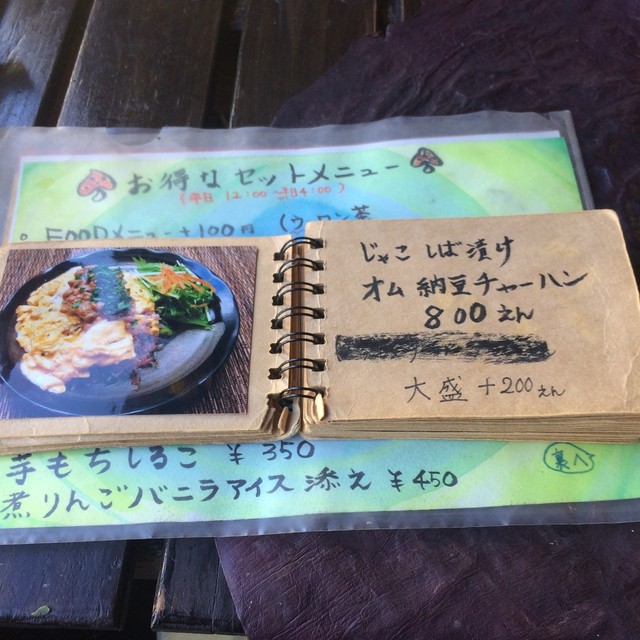 お得なセットメニュー
(平日 12:00〜14:00)
FOODメニュー+100円 (ウーロン茶
じゃこしば漬け
オム納豆チャーハン
800えん
大盛+200えん
芋もちしるこ ¥350
煮りんごバニラアイス添え ¥450
裏へ